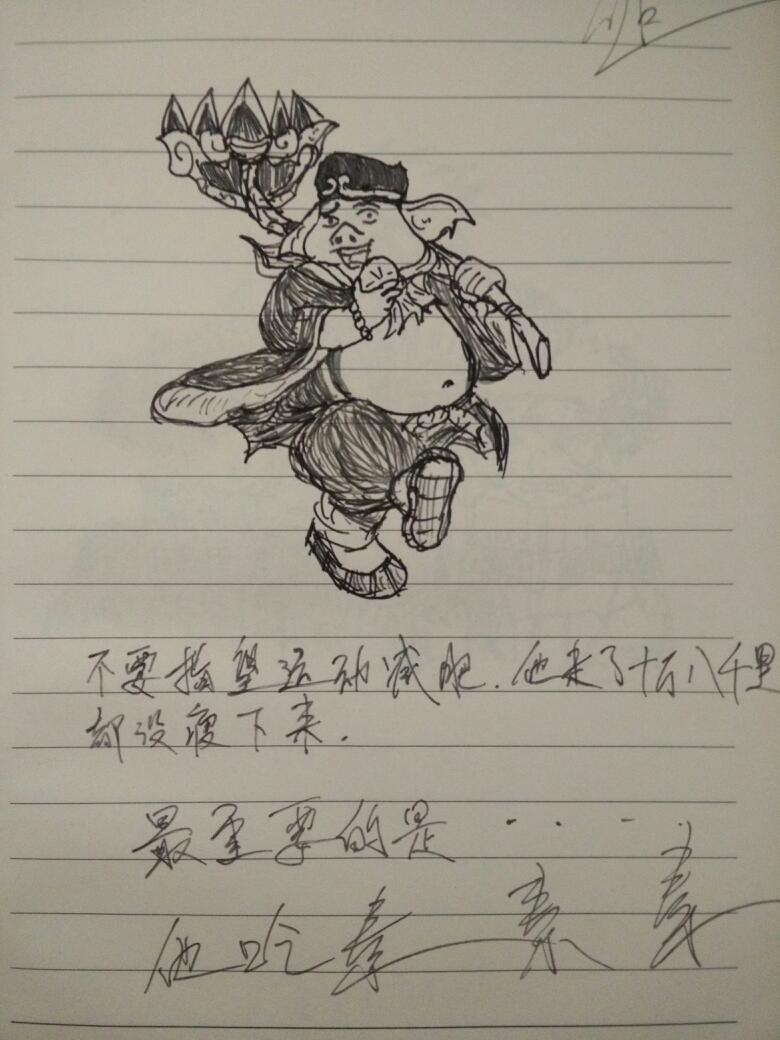 不要指望运动减肥.他走了十万八千里
都没瘦下来.
最重要的是 . . . . .
他吃素 素 素